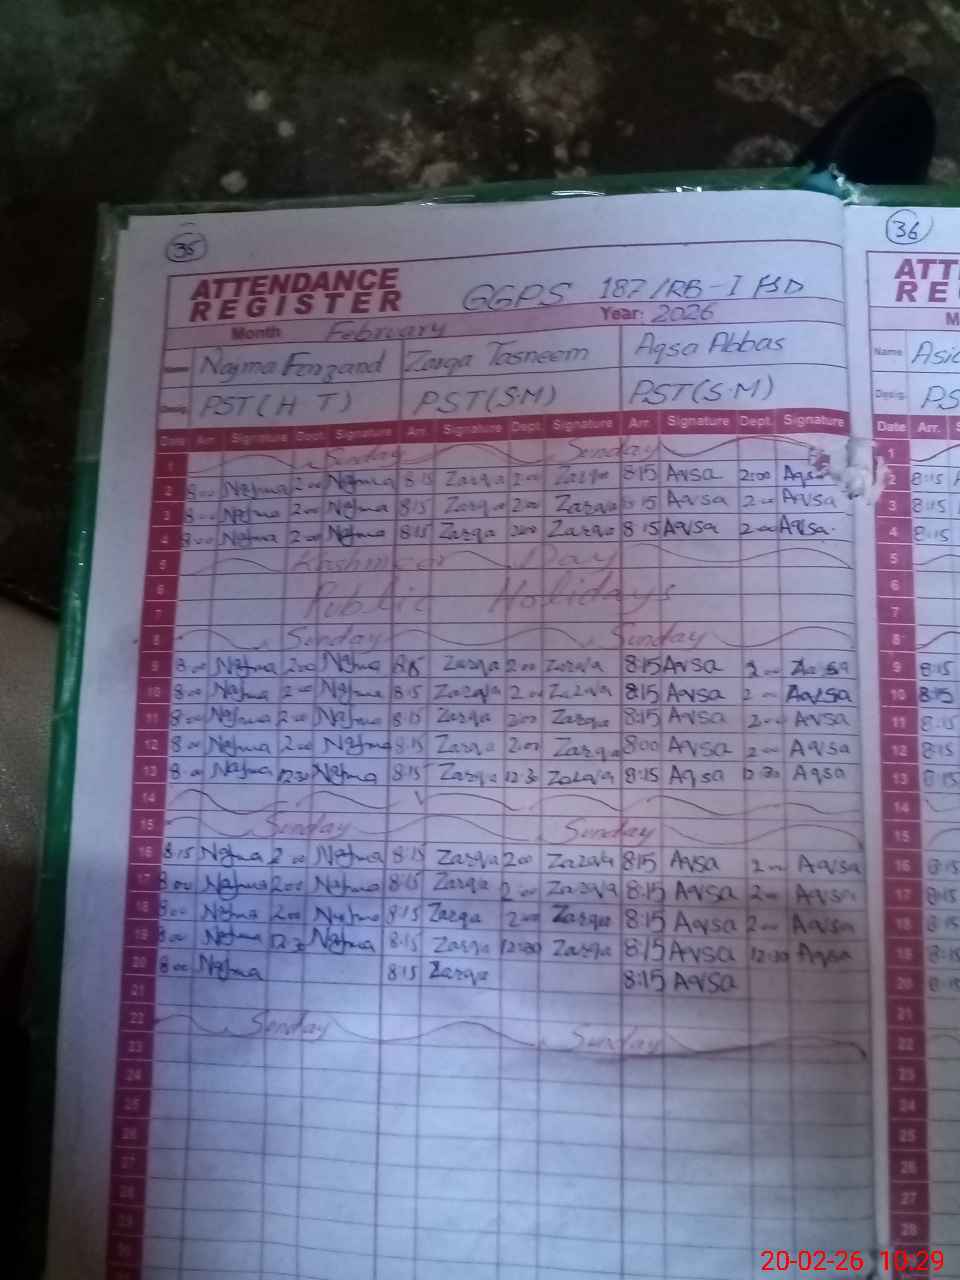 35
36
ATTENDANCE REGISTER GGPS 187/RB-I FSD
Month February Year: 2026
Name Najma Farzand Zarqa Tasneem Aqsa Abbas
Desig. PST (H T) PST (S.M) PST (S.M)
Date Arr. Signature Dept. Signature Arr. Signature Dept. Signature Arr. Signature Dept. Signature
1 Sunday Sunday
2 8:00 Najma 2:00 Najma 8:15 Zarqa 2:00 Zarqa 8:15 Aqsa 2:00 Aqsa
3 8:00 Najma 2:00 Najma 8:15 Zarqa 2:00 Zarqa 8:15 Aqsa 2:00 Aqsa
4 8:00 Najma 2:00 Najma 8:15 Zarqa 2:00 Zarqa 8:15 Aqsa 2:00 Aqsa
5 Kashmeer Day
6 Public Holidays
7
8 Sunday Sunday
9 8:00 Najma 2:00 Najma 8:15 Zarqa 2:00 Zarqa 8:15 Aqsa 2:00 Aqsa
10 8:00 Najma 2:00 Najma 8:15 Zarqa 2:00 Zarqa 8:15 Aqsa 2:00 Aqsa
11 8:00 Najma 2:00 Najma 8:15 Zarqa 2:00 Zarqa 8:15 Aqsa 2:00 Aqsa
12 8:00 Najma 2:00 Najma 8:15 Zarqa 2:00 Zarqa 8:00 Aqsa 2:00 Aqsa
13 8:00 Najma 12:30 Najma 8:15 Zarqa 12:30 Zarqa 8:15 Aqsa 12:30 Aqsa
14
15 Sunday Sunday
16 8:15 Najma 2:00 Najma 8:15 Zarqa 2:00 Zarqa 8:15 Aqsa 2:00 Aqsa
17 8:00 Najma 2:00 Najma 8:15 Zarqa 2:00 Zarqa 8:15 Aqsa 2:00 Aqsa
18 8:00 Najma 2:00 Najma 8:15 Zarqa 2:00 Zarqa 8:15 Aqsa 2:00 Aqsa
19 8:00 Najma 12:30 Najma 8:15 Zarqa 12:30 Zarqa 8:15 Aqsa 12:30 Aqsa
20 8:00 Najma 8:15 Zarqa 8:15 Aqsa
21
22 Sunday Sunday
23
24
25
26
27
28
29
30
ATT
RE
Name Asia
Desig. PS
Date Arr.
1
2 8:15
3 8:15
4 8:15
5
6
7
8
9 8:15
10 8:15
11 8:15
12 8:15
13 8:15
14
15
16 8:15
17 8:15
18 8:15
19 8:15
20 8:15
21
22
23
24
25
26
27
28
20-02-26 10:29